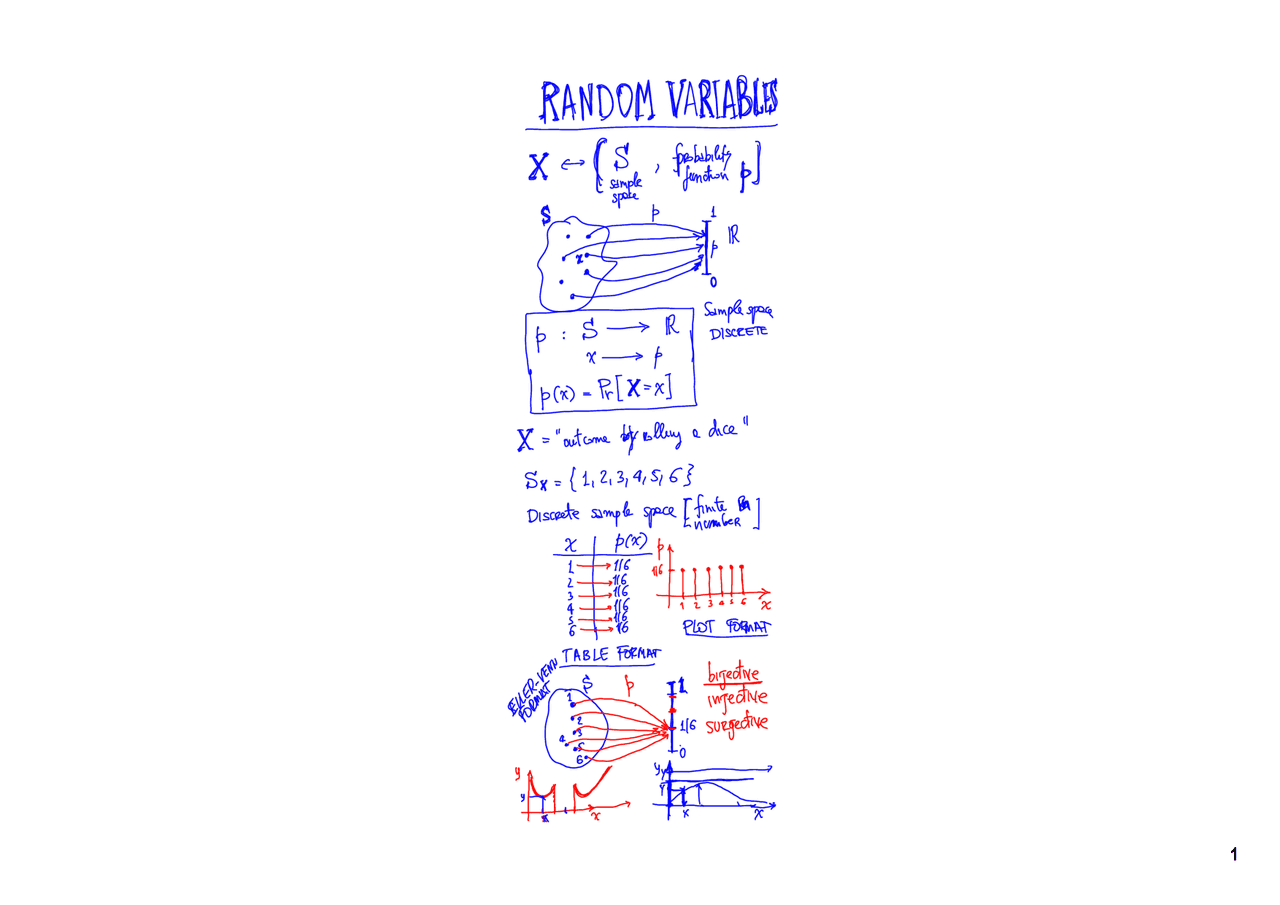 RANDOM VARIABLES
X ↔ ( S , probability function p ]
sample space
S p 1
x p ℝ
0
Sample space
DISCRETE
p : S → ℝ
x → p
p(x) = Pr[X=x]
X = "outcome by rolling a dice"
Sx = {1, 2, 3, 4, 5, 6}
Discrete sample space [finite number]
x p(x)
1 → 1/6
2 → 1/6
3 → 1/6
4 → 1/6
5 → 1/6
6 → 1/6
p
1/6
1 2 3 4 5 6 x
PLOT FORMAT
TABLE FORMAT
EULER-VENN FORMAT
S p 1
1
2
3
4
5
6
1/6
0
bijective
injective
surgective
y
y
x
y
x x